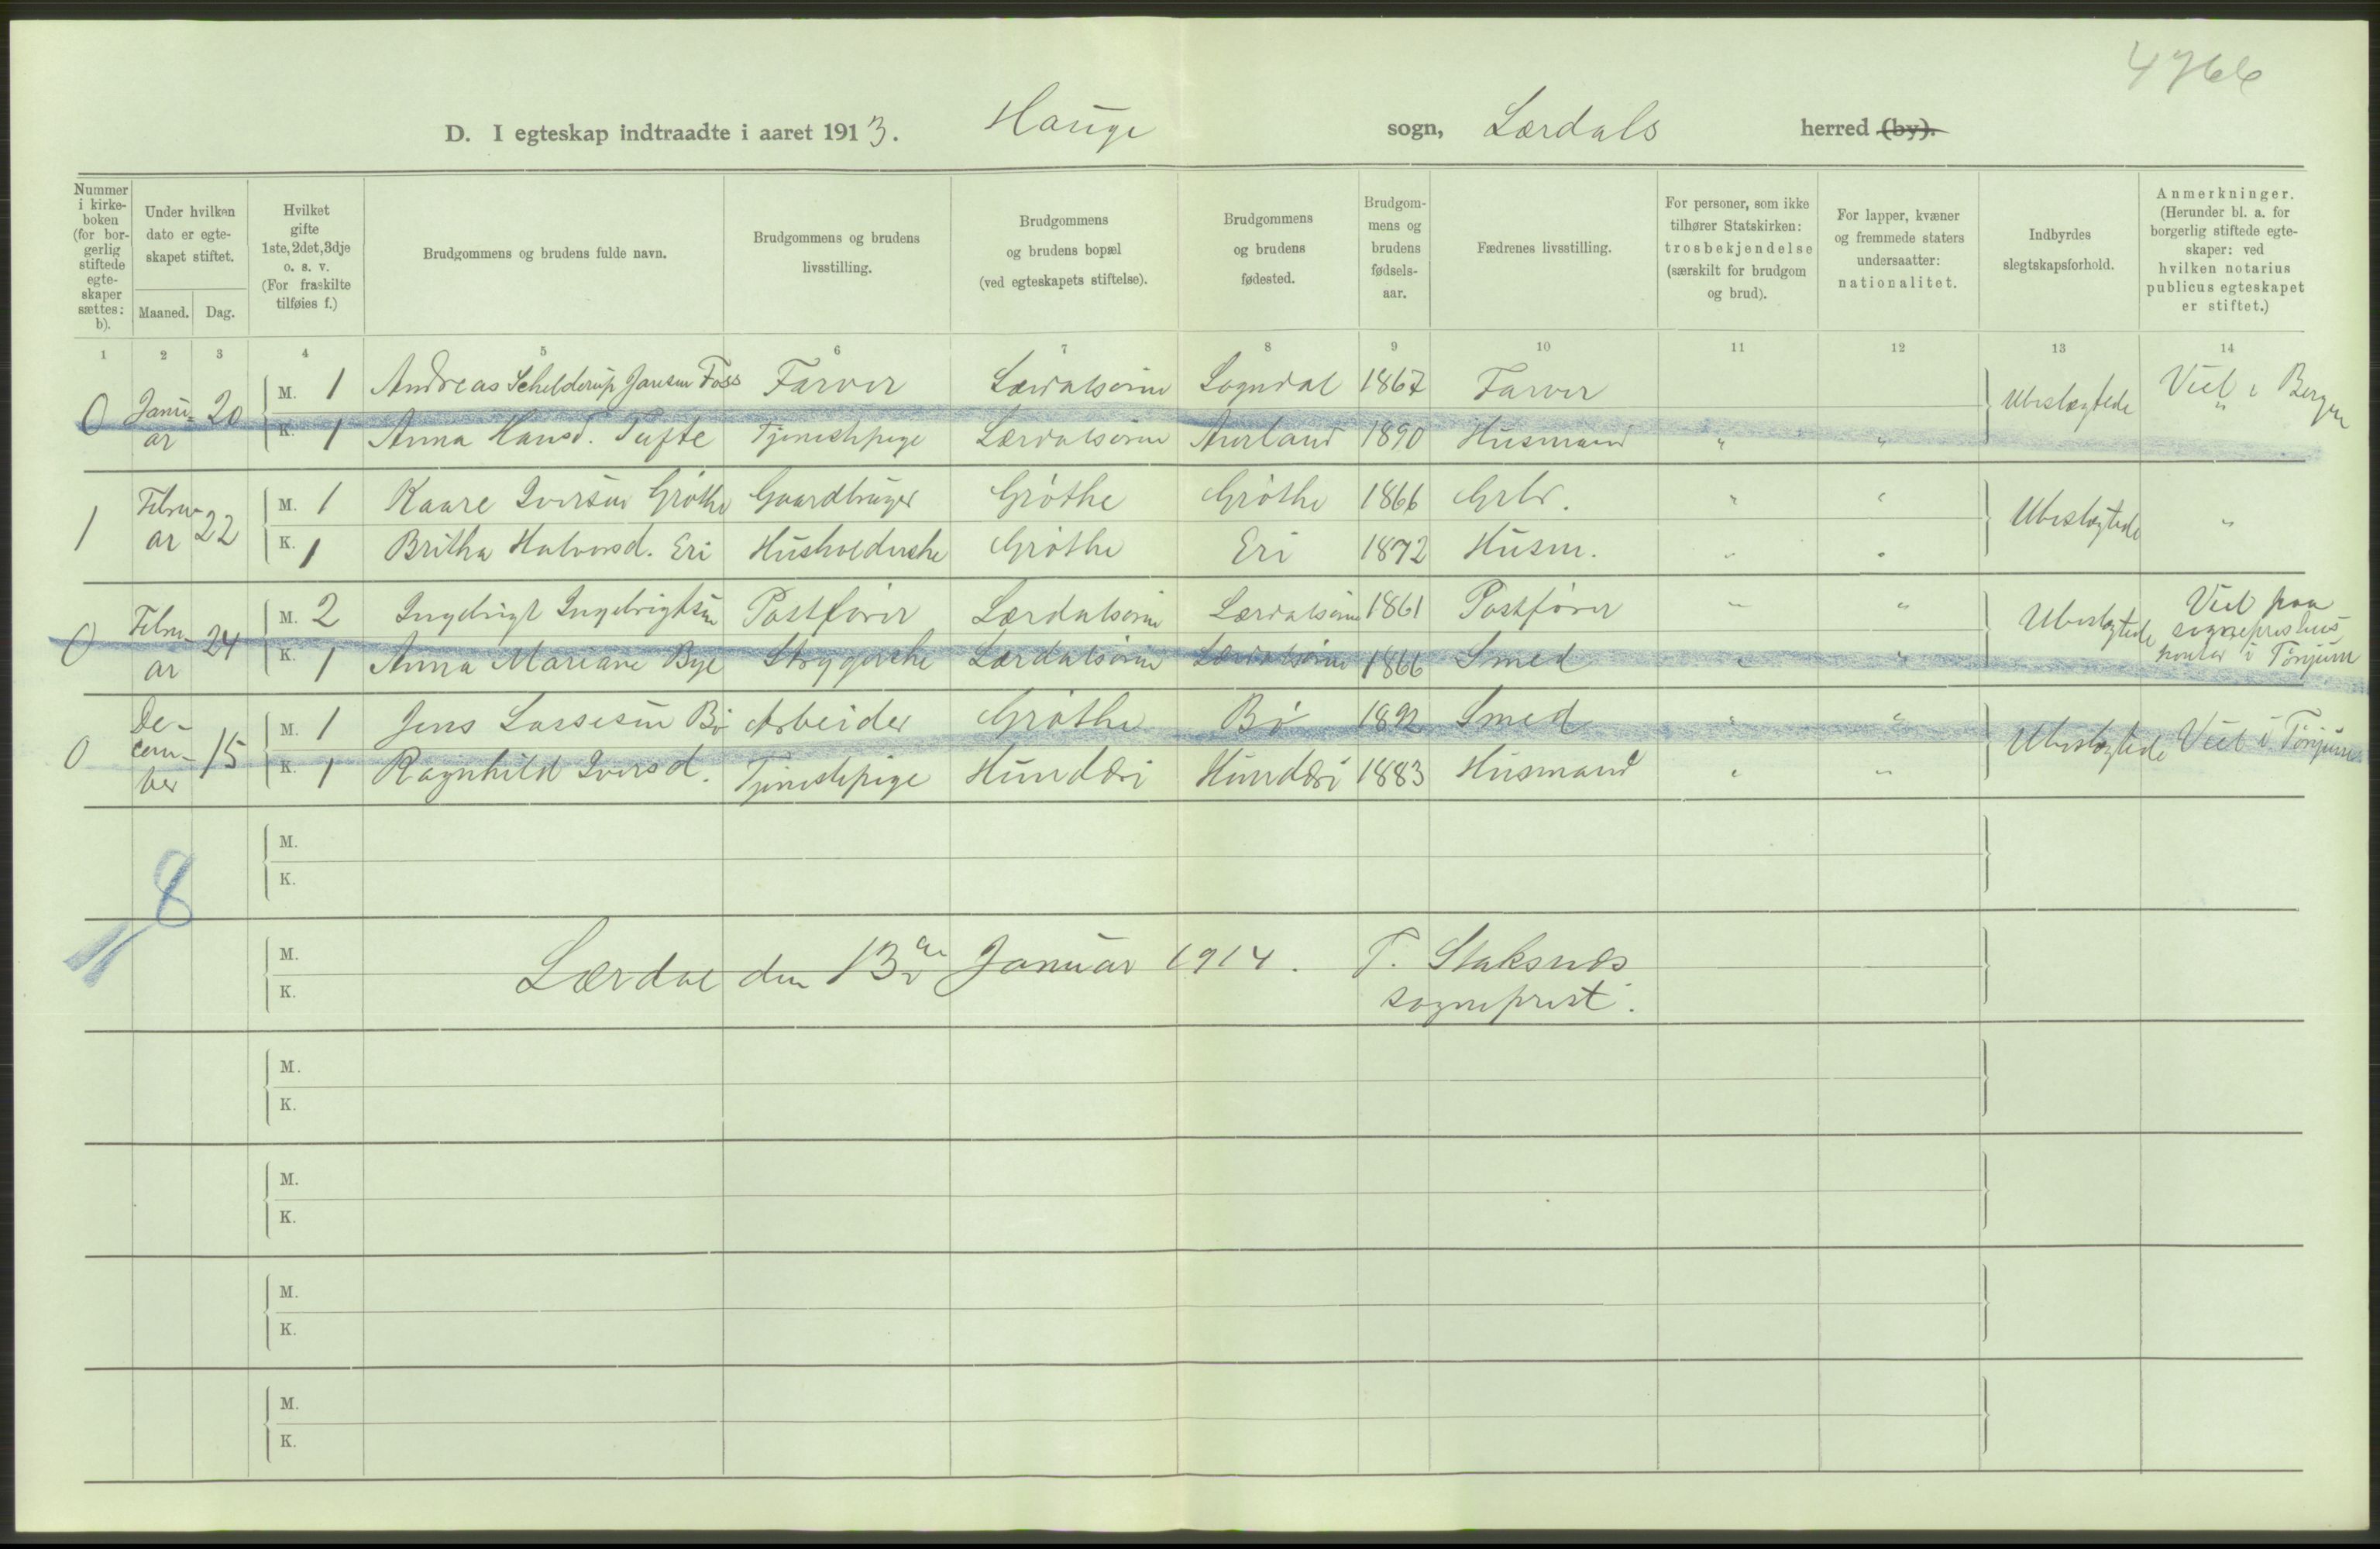 4766
D. I egteskap indtraadte i aaret 1913. Hauge sogn, Lærdals herred (by).
Nummer i kirkeboken (for borgerlig stiftede egteskaper sættes: b).
Under hvilken dato er egteskapet stiftet.
Maaned. Dag.
Hvilket gifte 1ste, 2det, 3dje o. s. v. (For fraskilte tilføies f.)
Brudgommens og brudens fulde navn.
Brudgommens og brudens livsstilling.
Brudgommens og brudens bopæl (ved egteskapets stiftelse).
Brudgommens og brudens fødested.
Brudgommens og brudens fødselsaar.
Fædrenes livsstilling.
For personer, som ikke tilhører Statskirken: trosbekjendelse (særskilt for brudgom og brud).
For lapper, kvæner og fremmede staters undersaatter: nationalitet.
Indbyrdes slegtskapsforhold.
Anmerkninger. (Herunder bl. a. for borgerlig stiftede egteskaper: ved hvilken notarius publicus egteskapet er stiftet.)
1 2 3 4 5 6 7 8 9 10 11 12 13 14
0 Januar 20 M. 1 Andreas Schelderup Jansen Foss Farver Lærdalsøren Sogndal 1867 Farver Ubeslægtede Viet i Bergen
K. 1 Anna Hansd. Tufte Tjenestepige Lærdalsøren Aurland 1890 Husmand " "
1 Februar 22 M. 1 Kaare Iversen Grøthe Gaardbruger Grøthe Grøthe 1866 Grbr. " " Ubeslægtede "
K. 1 Britha Halvorsd. Eri Husholderske Grøthe Eri 1872 Husm. " "
0 Februar 24 M. 2 Ingebrigt Ingebrigtsen Postfører Lærdalsøren Lærdalsøren 1861 Postfører " " Ubeslægtede Viet paa sogneprestens kontor i Tønjum
K. 1 Anna Mariane Bye Strygerske Lærdalsøren Lærdalsøren 1866 Smed " "
0 December 15 M. 1 Jens Lassesen Bø Arbeider Grøthe Bø 1892 Smed " " Ubeslægtede Viet i Tønjum
K. 1 Ragnhild Iversd. Tjenestepige Hunderi Hunderi 1883 Husmand " "
M.
K.
8
M. Lærdal den 13de Januar 1914. T. Staksnes
K. sogneprest.
M.
K.
M.
K.
M.
K.
M.
K.